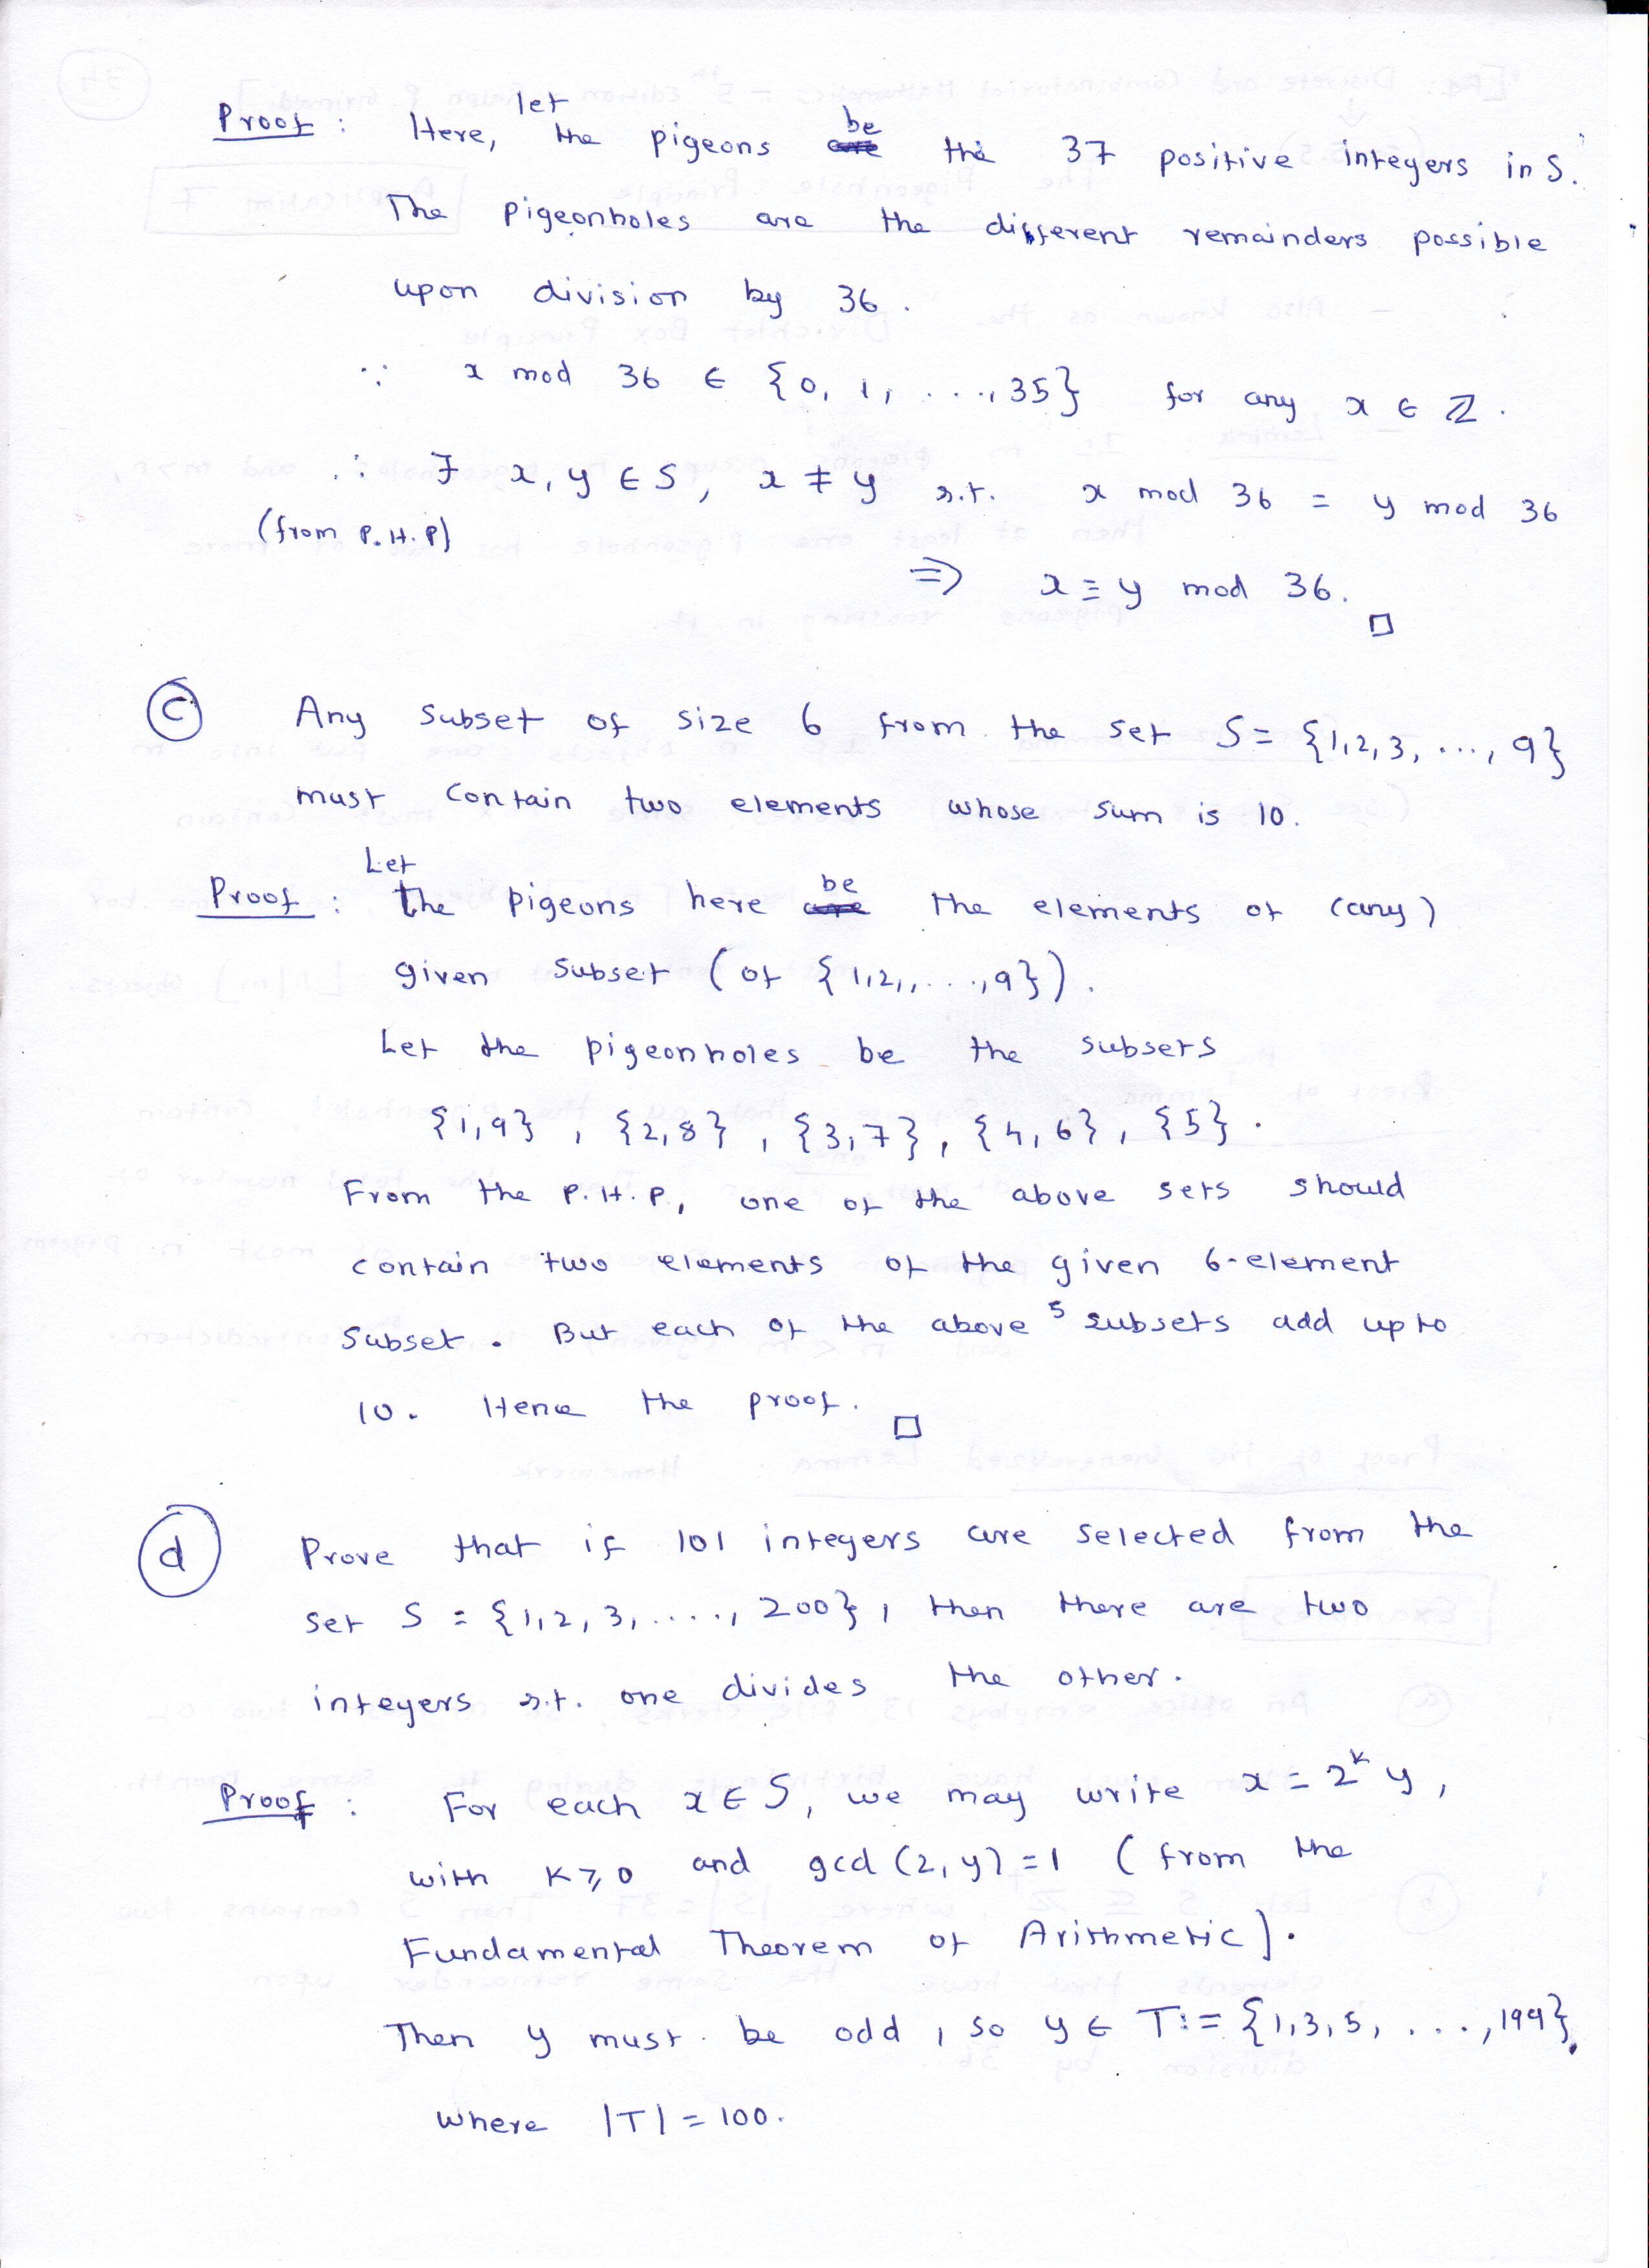 Proof : Here, let the pigeons be the 37 positive integers in S.
The pigeonholes are the different remainders possible
upon division by 36.
∵ x mod 36 ∈ {0, 1, ..., 35} for any x ∈ ℤ.
∴ ∃ x, y ∈ S, x ≠ y s.t. x mod 36 = y mod 36
(from P.H.P)
⇒ x ≡ y mod 36. □
(c) Any subset of size 6 from the set S = {1,2,3, ..., 9}
must contain two elements whose sum is 10.
Proof : Let the pigeons here be the elements of (any)
given subset (of {1,2,, ...,9}).
Let the pigeonholes be the subsets
{1,9} , {2,8} , {3,7} , {4,6} , {5} .
From the P.H.P., one of the above sets should
contain two elements of the given 6-element
subset. But each of the above 5 subsets add up to
10. Hence the proof. □
(d) Prove that if 101 integers are selected from the
set S = {1,2,3, ...., 200}, then there are two
integers s.t. one divides the other.
Proof : For each x ∈ S, we may write x = 2^k y,
with k ⩾ 0 and gcd (2, y) = 1 (from the
Fundamental Theorem of Arithmetic).
Then y must be odd, so y ∈ T := {1,3,5, ..., 199},
where |T| = 100.